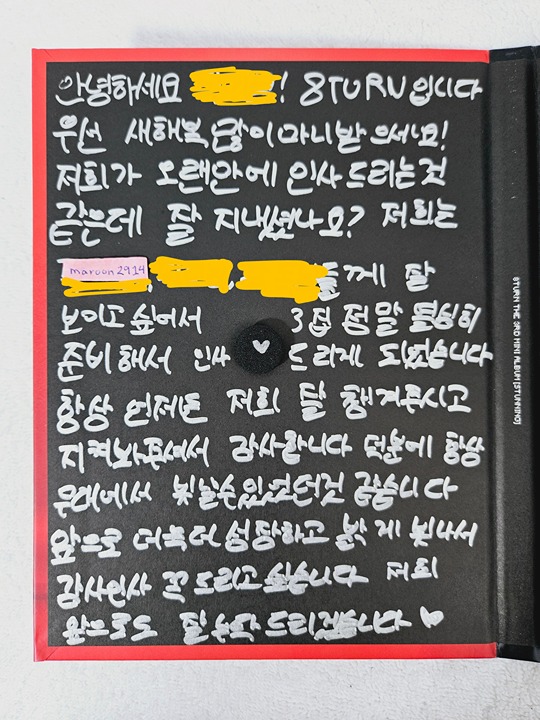 안녕하세요 ! 8TURU입니다
우선 새해복 많이 마니 받으세요!
저희가 오랜만에 인사드리는것
같은데 잘 지내셨나요? 저희는
maroon2914 들께 잘
보이고 싶어서 3집 정말 열심히
준비해서 인사 드리게 되었습니다
항상 언제든 저희 잘 챙겨주시고
지켜봐주셔서 감사합니다 덕분에 항상
무대에서 빛날수있었던것 같습니다
앞으로 더욱더 성장하고 밝게 빛나서
감사인사 꼭 드리고 싶습니다 저희
앞으로도 잘 부탁드리겠습니다
8TURN THE 3RD MINI ALBUM [STUNNING]